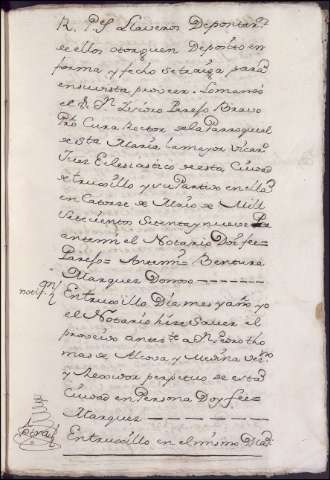 R. Pes Llaveros Depontar.
de ellos otorguen Deposito en
forma y fecho se traiga para
en su vista proveer. Lo mandó
el Sr. Dn. Isidro Parejo Bravo
Pbro Cura Rector de la Parroquial
de Sta. Maria la mayor Vicario
Juez Eclesiastico de esta Ciudad
de truxillo y su Partido en ella
en Catorce de Maio de Mill
Setecientos Setenta y nueve
ante mi el Notario Doy fee=
Parejo= Antemi= Bentura
Marquez Donoso
not.
En truxillo Dia mes y año yo
el Notario hize Saver el
proveido antes.te a Dn. Pedro tho
mas de y Medina Vezno
y Rexidor perpetuo de esta
Ciudad en Persona Doy fee=
Marquez
En truxillo en el mismo Dia